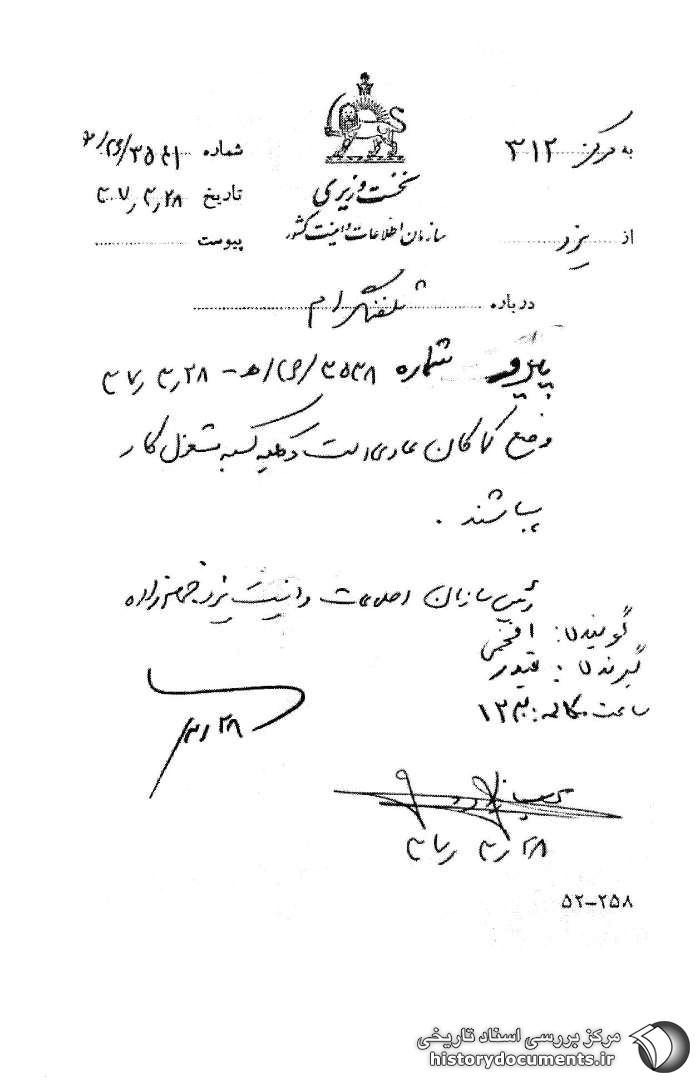 به مرکز ۳۱۲
از یزد
نخست وزیری
سازمان اطلاعات و امنیت کشور
شماره ۳۵۴۱/
تاریخ ۴۷٫۳٫۲۸
پیوست
درباره تلفنگرام
پیرو شماره ۳۵۳۸/ ۵/ه‍ - ۴۷٫۳٫۲۸
وضع کماکان عادی است و کلیه کسبه مشغول کار
میباشند .
رئیس سازمان اطلاعات و امنیت یزد
گوینده : افخمی
گیرنده :
ساعت مکالمه :
۳٫۲۸
۴۷٫۳٫۲۸
۵۲-۲۵۸
مرکز بررسی اسناد تاریخی
historydocuments.ir